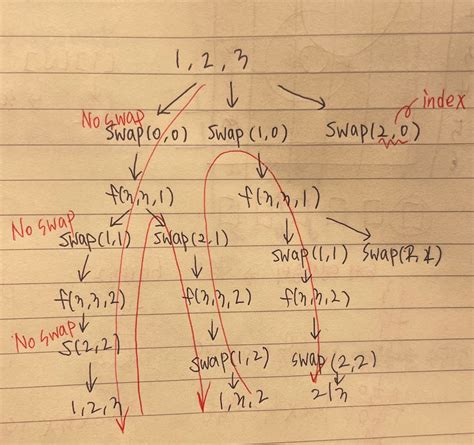 1, 2, 3
index
No swap
swap(0,0) swap(1,0) swap(2,0)
f(n,n,1) f(n,n,1)
No swap
swap(1,1) swap(2,1)
swap(1,1) swap(2,1)
f(n,n,2) f(n,n,2) f(n,n,2)
No swap
S(2,2)
swap(1,2) swap(2,2)
1,2,3 1,3,2 213